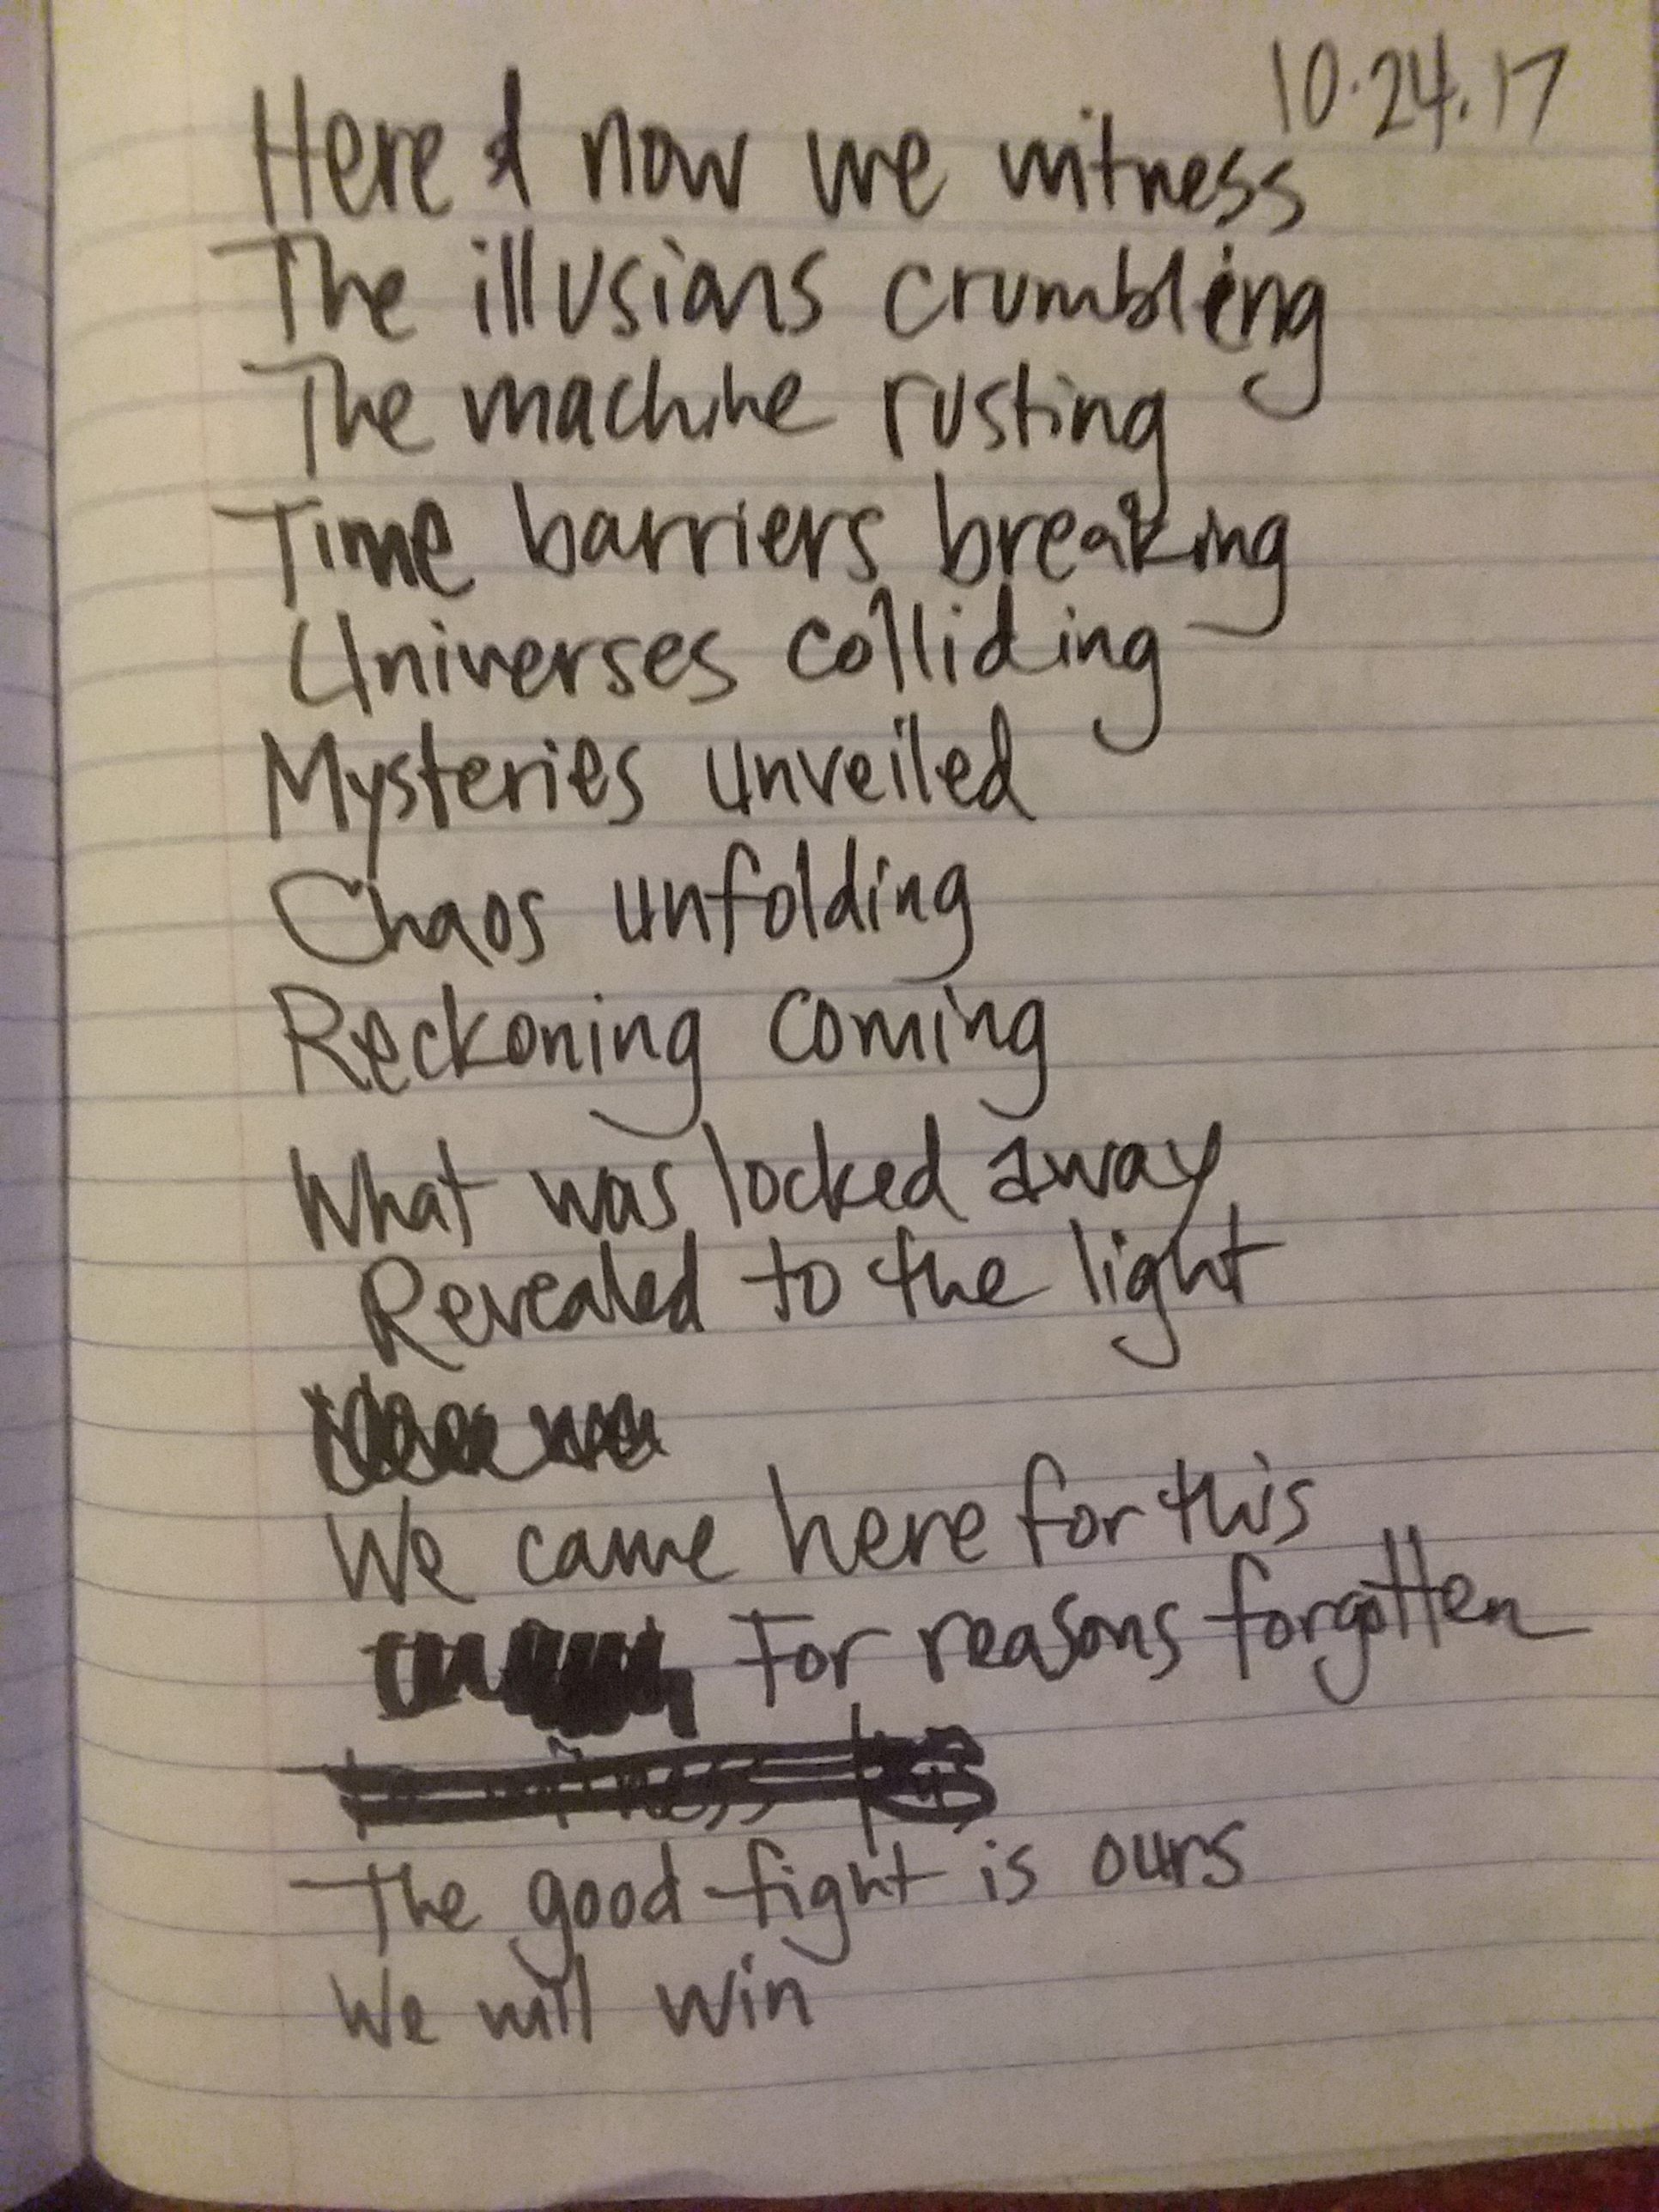 10.24.17
Here & now we witness
The illusions crumbling
The machine rusting
Time barriers breaking
Universes colliding
Mysteries unveiled
Chaos unfolding
Reckoning coming
What was locked away
Revealed to the light
We came here for this
For reasons forgotten
The good fight is ours
We will win